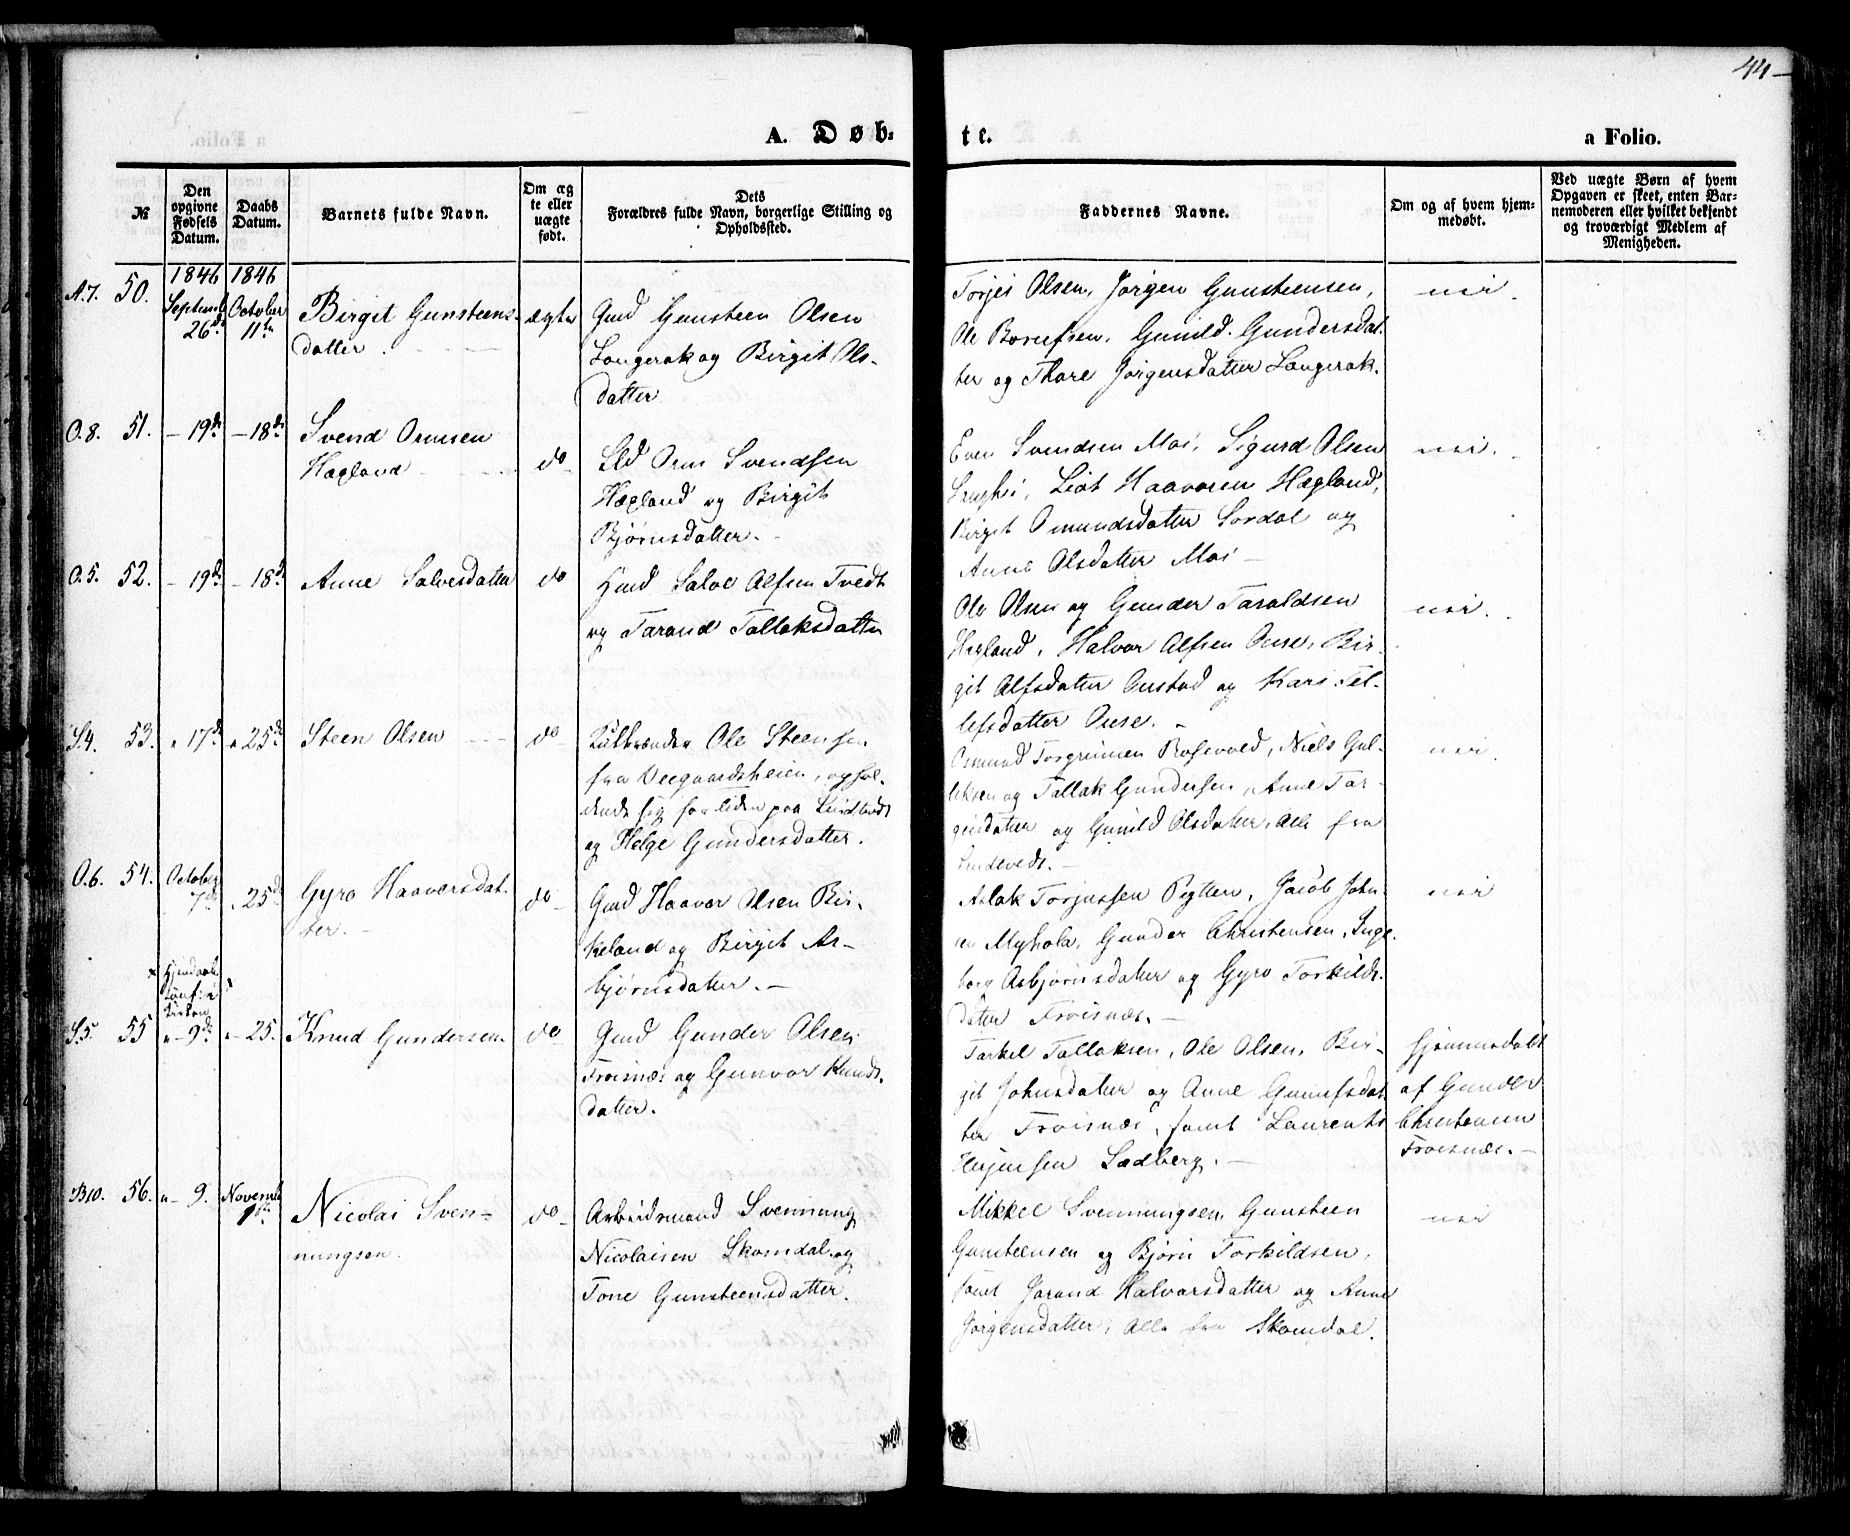 44
A. Døb-
te.
a Folio.
№
Den
opgivne
Fødsels
Datum.
Daabs
Datum.
Barnets fulde Navn.
Om æg
te eller
uægte
født.
Dets
Forældres fulde Navn, borgerlige Stilling og
Opholdssted.
Faddernes Navne.
Om og af hvem hjem-
medøbt.
Ved uægte Børn af hvem
Opgaven er skeet, enten Bar-
nemoderen eller hvilket bekjendt
og troværdigt Medlem af
Menigheden.
1846
1846
A.7. 50.
Septemb
26de
October
11te
Birgit Gunsteens-
datter.
ægte
Gmd Gunsteen Olsen
Langerak og Birgit Ols-
datter
Torjei Olsen, Jørgen Gunsteensen,
Ole Gunild Gundersdat-
ter og Thore Jørgensdatter Langerak.
nei.
O.8. 51.
- 19de
- 18de
Svend Ormsen
Hægland
do
Orm Svendsen
Hægland og Birgit
Bjørnsdatter.
Even Svendsen Moi, Sigurd Olsen
Liot Haavorsen Hægland,
Birgit Omundsdatter Sordal og
Anne Olsdatter Moi -
nei.
O.5. 52.
- 19de
- 18de
Anne Salvesdatter
do
Hmd Salve Alfsen Tvedt
og Tarand Tallaksdatter
Ole Olsen og Gunder Taraldsen
Hægland, Halvor Alfsen Ouse, Bir-
git Alfsdatter Oustad og Kari Tel-
lefsdatter Ouse. -
nei.
S.4. 53.
" 17de
" 25de
Steen Olsen
do
Ole Steensen
fra Veegaardsheien, ophol-
dende sig for tiden paa
og Helge Gundersdatter.
Osmund Torgrimsen Rosevold, Niels Gul-
liksen og Tallak Gundersen, Anne Tor-
og Gunild Olsdatter, alle fra
nei.
O.6. 54.
October
7de
" 25de
Gyro Haavorsdat-
ter. -
do
Gmd Haavor Olsen Bir-
keland og Birgit As-
bjørnsdatter. -
Aslak Torjussen Bygten, Jacob John-
sen Myhola, Gunder Christensen, Inge-
borg Asbjørnsdatter og Gyro Torkilds-
datter Frøisnæs. -
nei
x
Hjemdaab
Kirken
S.5. 55
" - 9de
" - 25.
Knud Gundersen
do
Gmd Gunder Olsen
Frøisnæs og Gunvor Knuds-
datter.
Tarkel Tallaksen, Ole Olsen, Bir-
git Johnsdatter og Anne
ter Frøisnæs, samt Laurents
Ladberg. -
hjemmedøbt
af Gunder
Christensen
Frøisnæs. -
B.10. 56.
" - 9.
Novemb
1ste
Nicolai Sven-
nungsen.
do
Arbeidsmand Svennung
Nicolaisen Skomdal og
Tone Gunsteensdatter.
Mikkel Svennungsen, Gunsteen
Gunsteensen og Bjørn Torkildsen,
samt Jorand Halvorsdatter og Anne
Jørgensdatter, alle fra Skomdal.
nei